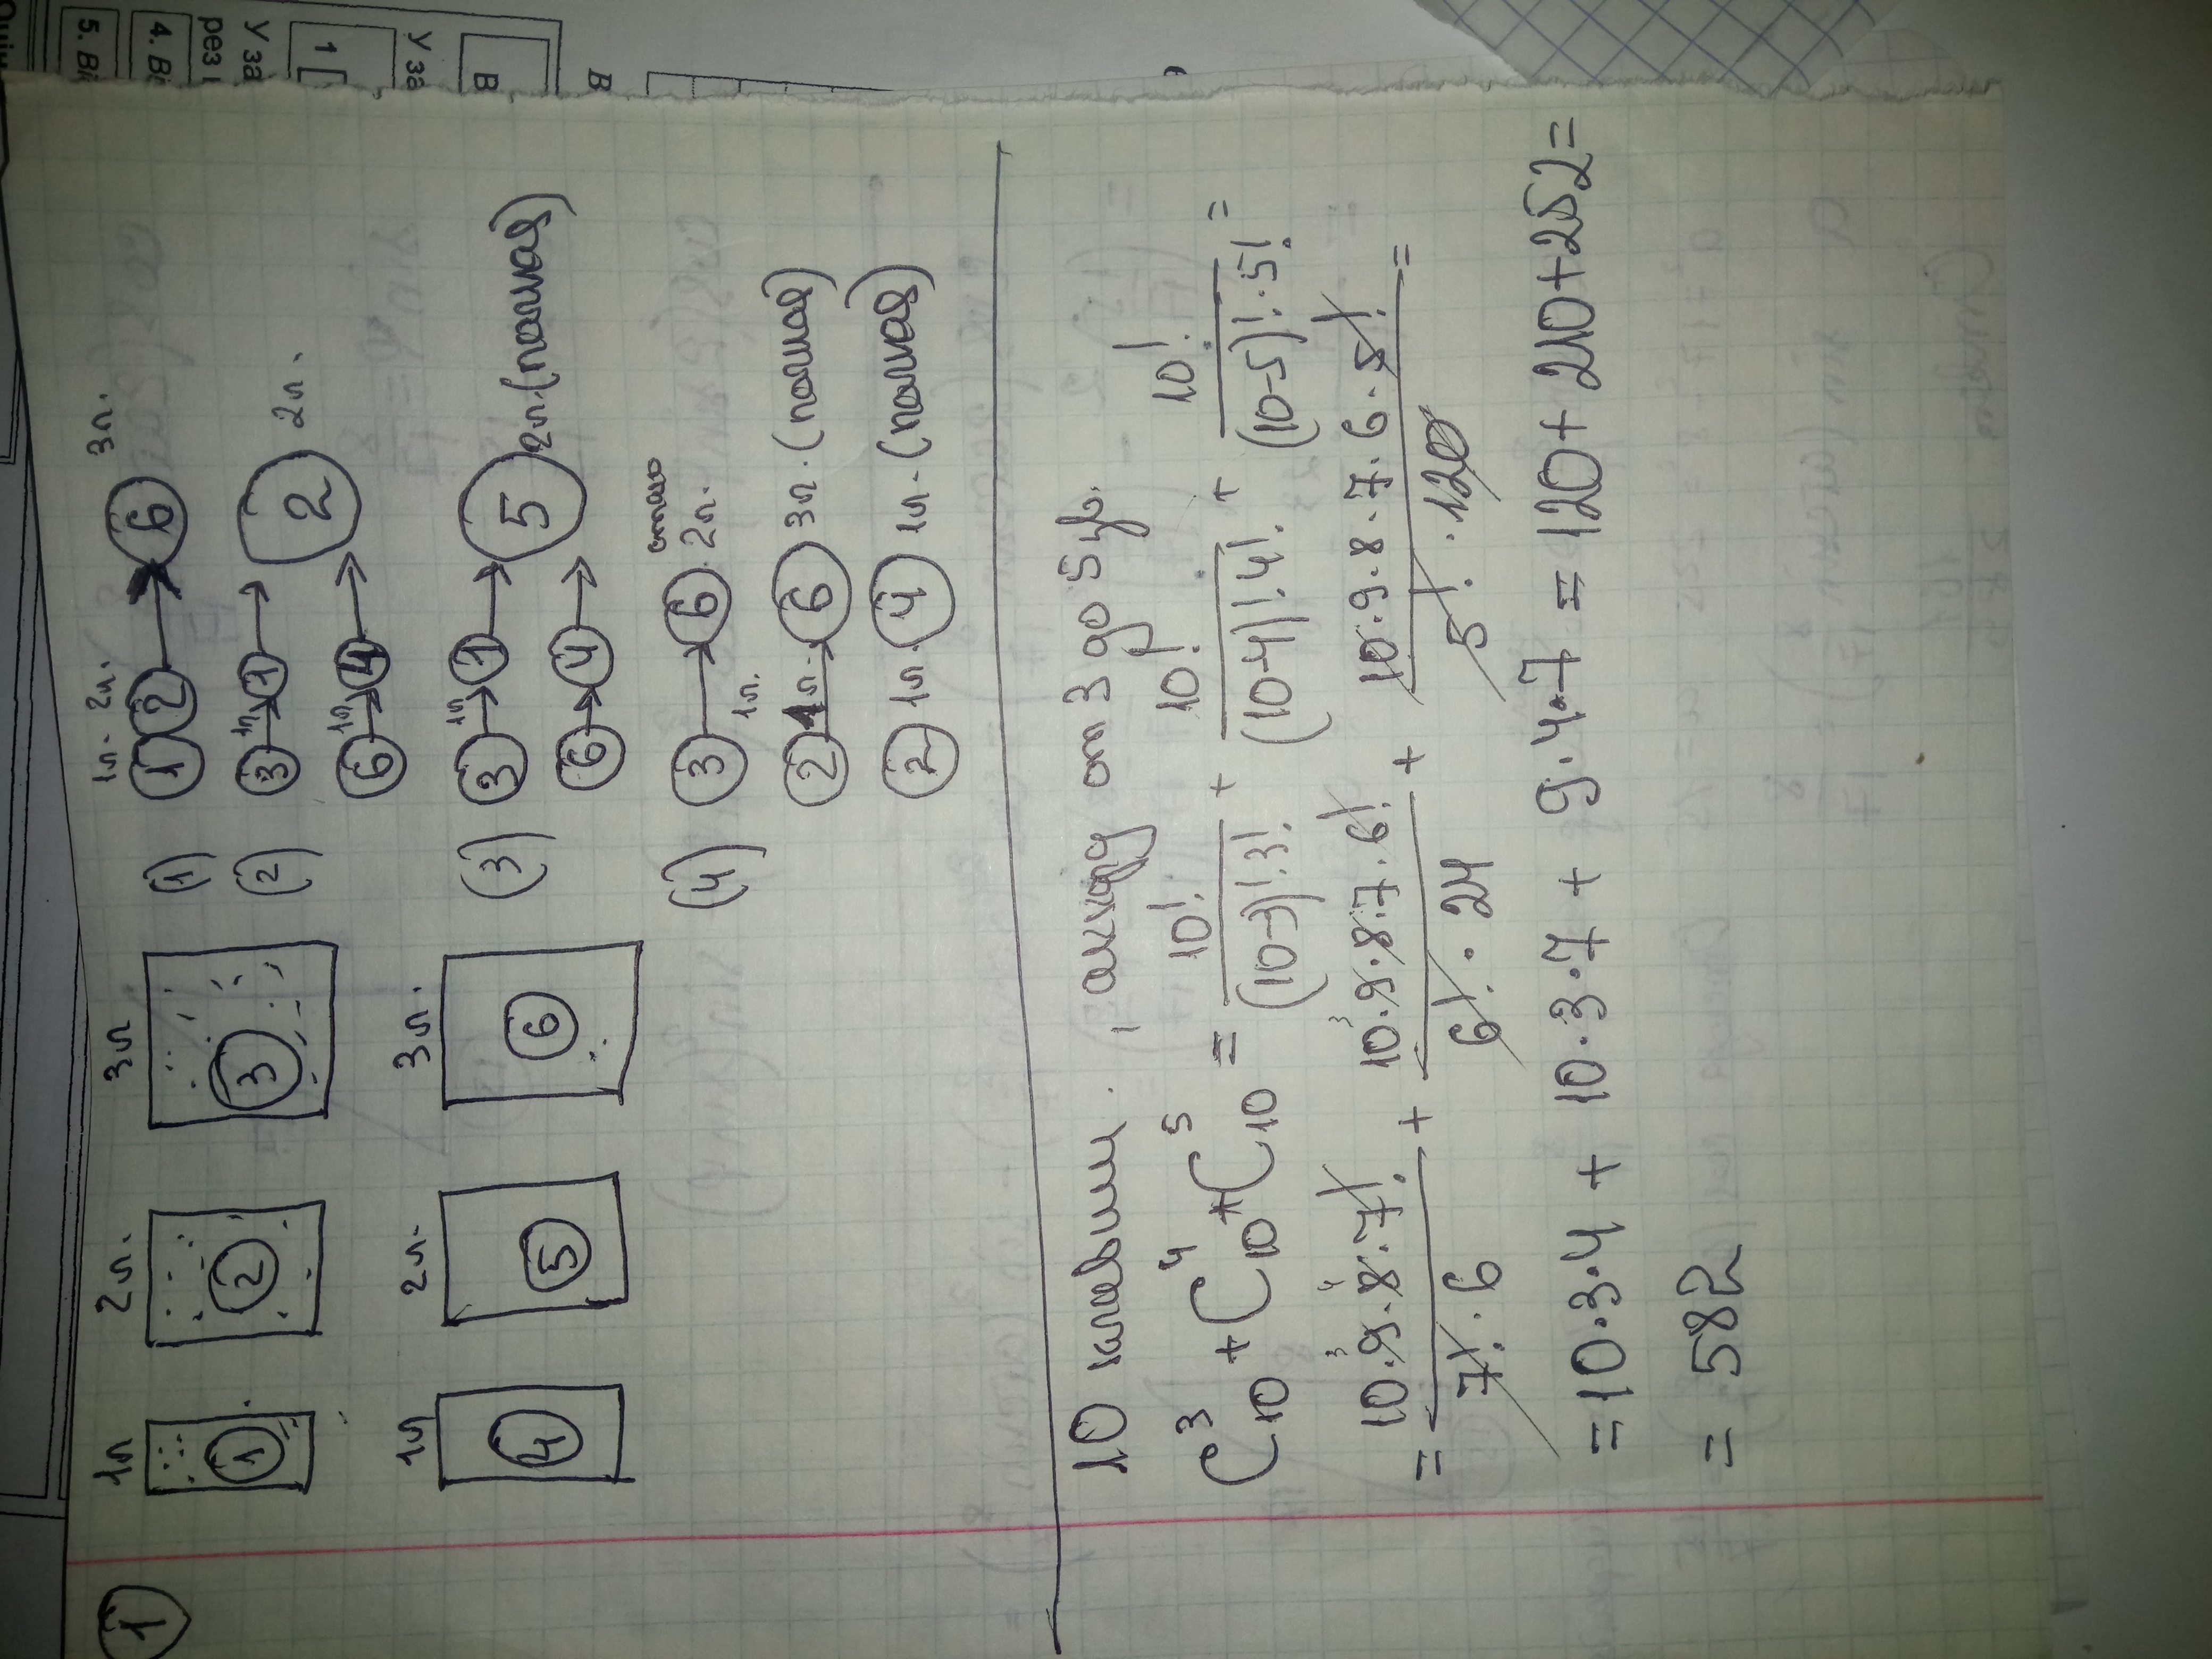 1
1л 2л. 3л
1 2 3
1л 2л. 3л.
4 5 6
(1) 1л. 2л. 3л.
1 2 → 6
(2) 3 1л → 1 → 2 2л.
6 1л → 4 →
(3) 3 1л → 1 → 5 2л. (полная)
6 → 4 →
(4) 3 → 6 2л.
1л.
2 1л. → 6 3л. (полная)
2 1л. 4 1л. (полная)
10 клавиш, аккорд от 3 до 5 зв.
C₁₀³ + C₁₀⁴ + C₁₀⁵ = 10!/((10-3)!·3!) + 10!/((10-4)!·4!) + 10!/((10-5)!·5!) =
= 10·9·8·7!/(7!·6) + 10·9·8·7·6!/(6!·24) + 10·9·8·7·6·5!/(5!·120) =
= 10·3·4 + 10·3·7 + 9·4·7 = 120 + 210 + 252 =
= 582
У за
рез
4. Ві
5. Ві
1
У за
В
В